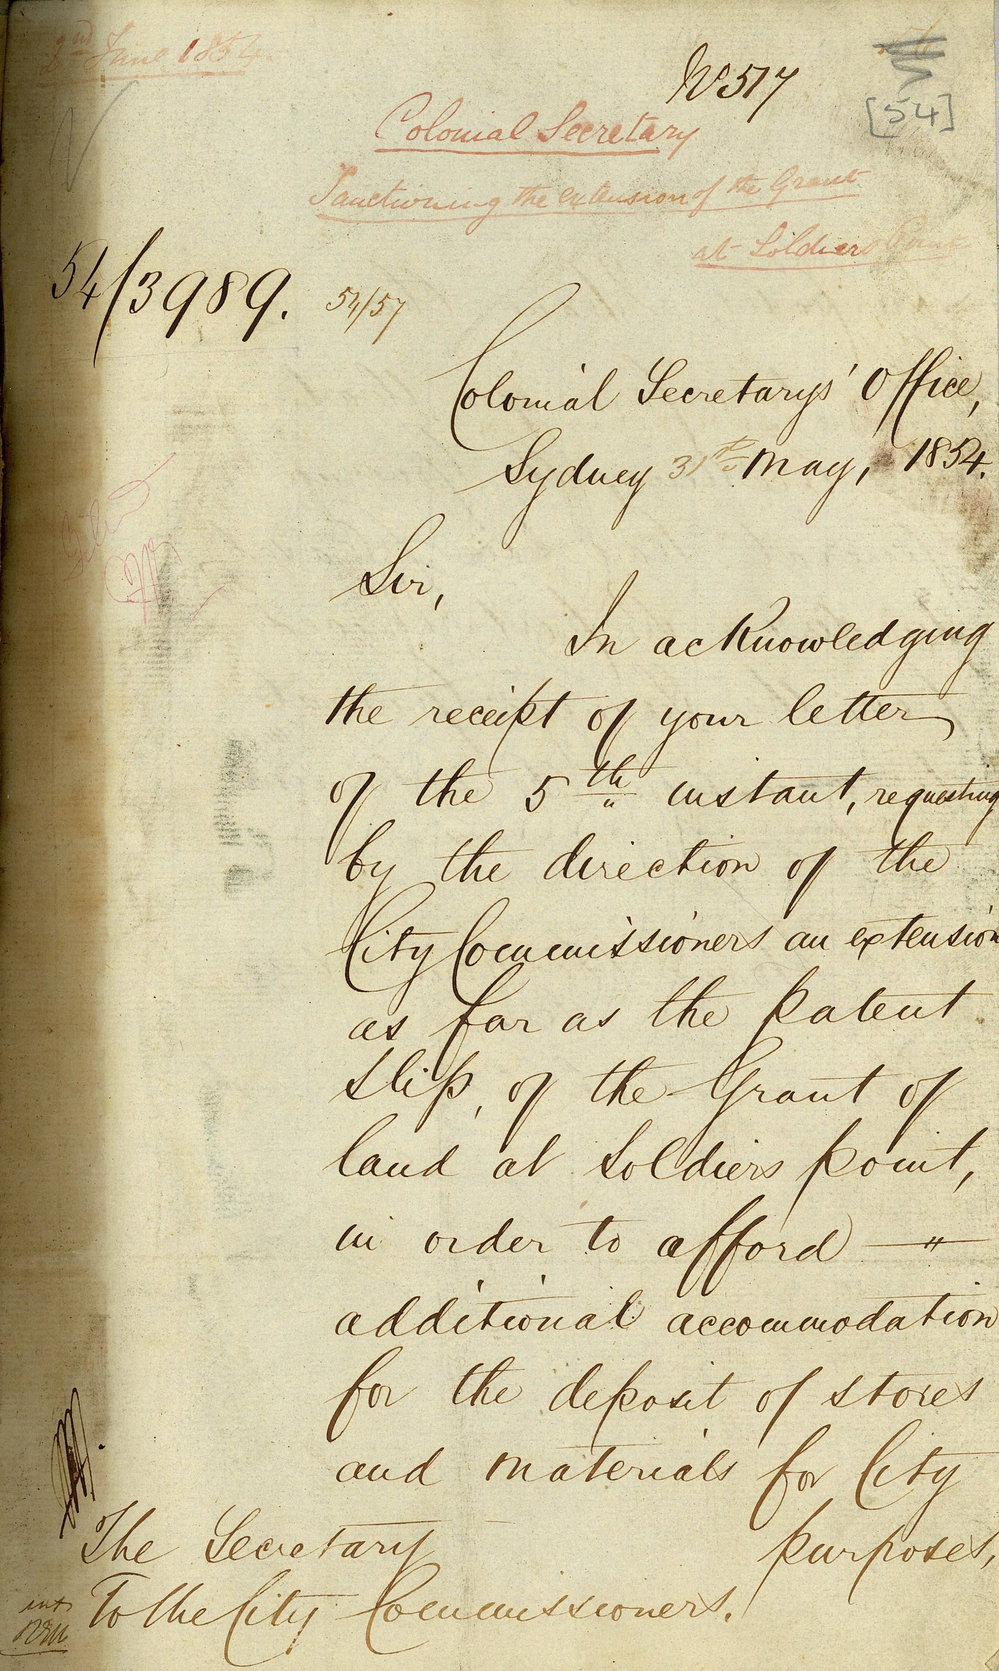 2nd June 1854.
No 517
[54]
Colonial Secretary
Sanctioning the extension of the Grant
at Soldiers Point
54/3989.
54/57
Colonial Secretarys' Office,
Sydney 31st May, 1854.
Sir,
In acknowledging
the receipt of your letter
of the 5th instant, requesting
by the direction of the
City Commissioners an extension
as far as the patent
slip, of the Grant of
land at Soldiers point,
in order to afford — "
additional accommodation
for the deposit of stores
and materials for City
purposes,
The Secretary
To the City Commissioners.